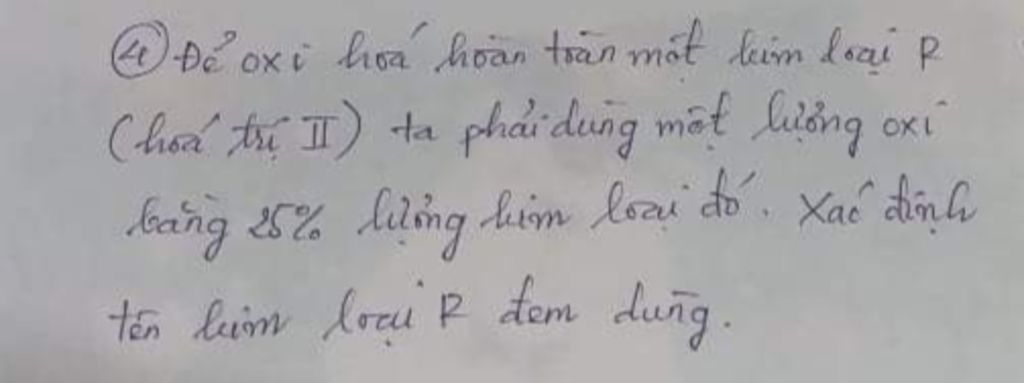 ④ Để oxi hoá hoàn toàn một kim loại R
(hoá trị II) ta phải dùng một lượng oxi
bằng 25% lượng kim loại đó. Xác định
tên kim loại R đem dùng.